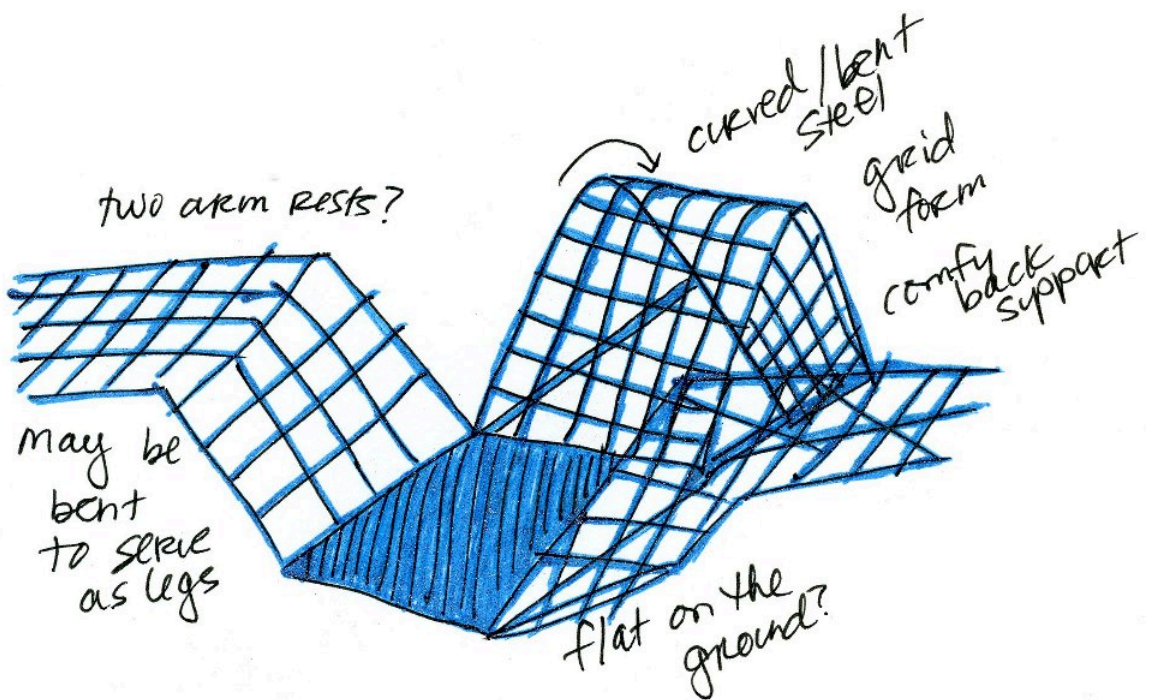 two arm rests?
curved/bent
steel
grid
form
comfy
back
support
may be
bent
to serve
as legs
flat on the
ground?